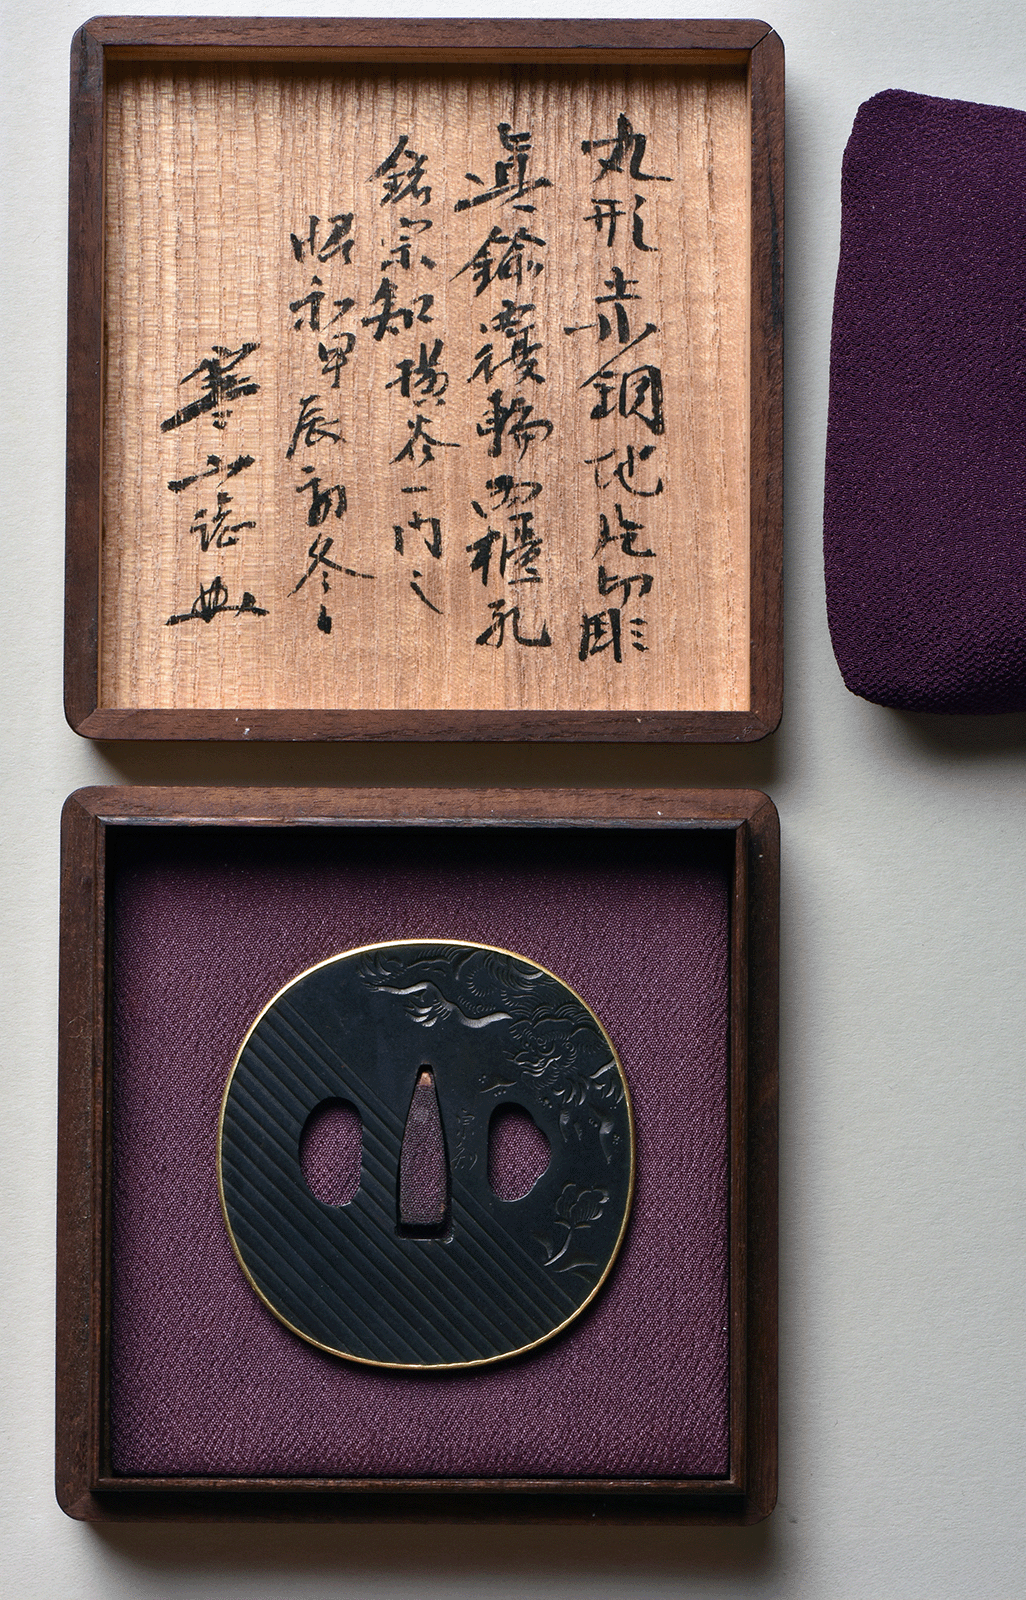 丸形赤銅地片切彫
真鍮覆輪両櫃孔
銘宗知横谷一門之
昭和甲辰初冬
寒山誌
宗知